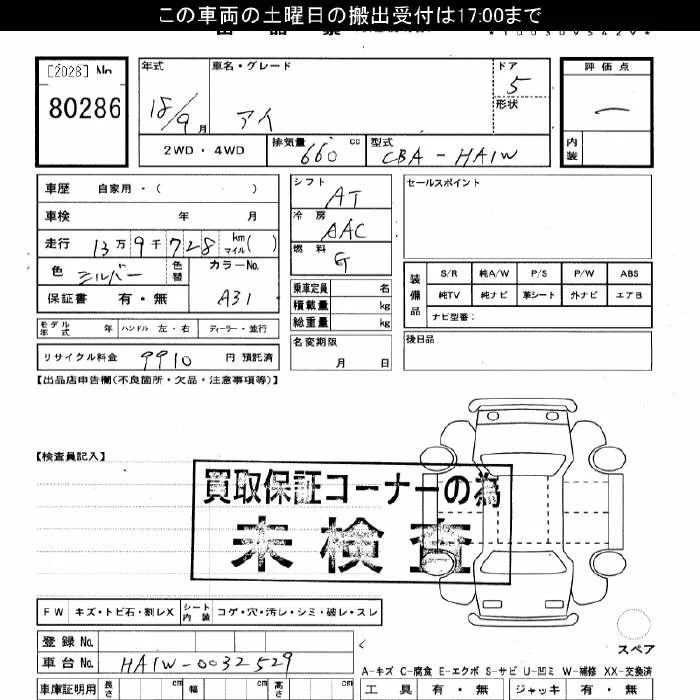 この車両の土曜日の搬出受付は17:00まで
[2028] No
80286
年式 車名・グレード ドア 評価点
18/9月 アイ 5 ー
形状
2WD・4WD 排気量 660 cc 型式 CBA-HA1W
内装
車歴 自家用・( )
車検 年 月
走行 13万9千728 km マイル( )
色 シルバー 色替 カラーNo. A31
保証書 有・無
シフト AT
冷房 AAC
燃料 G
乗車定員 名
積載量 kg
総重量 kg
セールスポイント
装備品 S/R 純A/W P/S P/W ABS
純TV 純ナビ 革シート 外ナビ エアB
ナビ型番:
モデル年式 年 ハンドル 左・右 ディーラー・並行
名変期限 月 日
後日品
リサイクル料金 9910 円 預託済
【出品店申告欄(不良箇所・欠品・注意事項等)】
【検査員記入】
買取保証コーナーの為
未検査
FW キズ・トビ石・割レX シート内装 コゲ・穴・汚レ・シミ・破レ・スレ
登録No.
スペア
車台No. HA1W-0032529
A-キズ C-腐食 E-エクボ S-サビ U-凹ミ W-補修 XX-交換済
車庫証明用 長さ cm 幅 cm 高さ cm 工具 有・無 ジャッキ 有・無